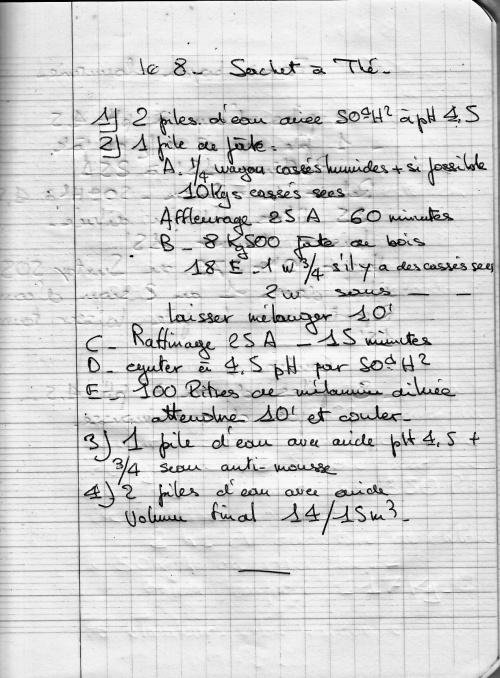 16 8 - Sachet à Thé -
1) 2 piles d'eau avec SO4H2 à pH 4,5
2) 1 pile de pâte.
A. 1/4 wagon cassés humides + si possible
10Kgs cassés secs
Affleurage 25 A 60 minutes
B - 8 Kg500 pâte de bois
18 E - 1 w 3/4 s'il y a des cassés secs
2w sans — —
laisser mélanger 10'
C - Raffinage 25A - 15 minutes
D - ajuter à 4,5 pH par SO4H2
E - 100 litres de mélamine diluée
attendre 10' et couler -
3) 1 pile d'eau avec acide pH 4,5 +
3/4 seau anti-mousse
4) 2 piles d'eau avec acide
Volume final 14/15m3 -